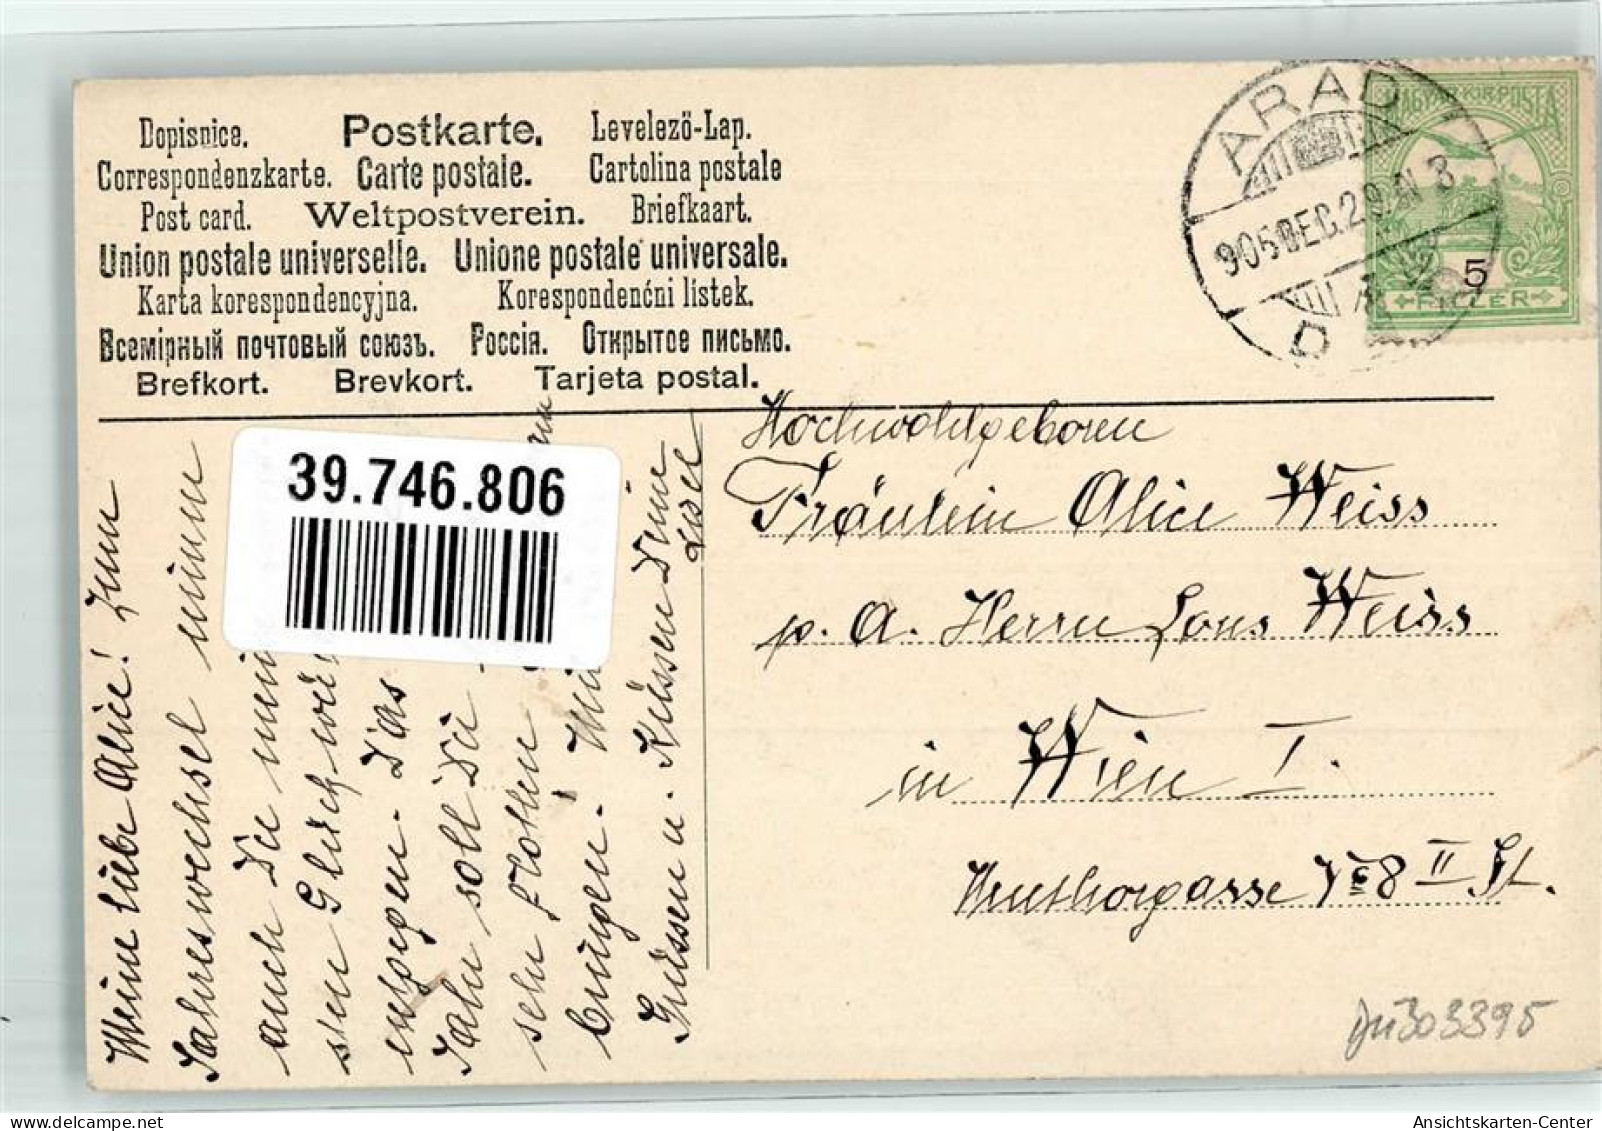 Dopisnice. Postkarte. Levelező-Lap.
Correspondenzkarte. Carte postale. Cartolina postale
Post card. Weltpostverein. Briefkaart.
Union postale universelle. Unione postale universale.
Karta korespondencyjna. Korespondenčni listek.
Всемірный почтовый союзъ. Россія. Открытое письмо.
Brefkort. Brevkort. Tarjeta postal.
ARAD
905 DEC. 29. N 3
D
MAGYAR KIR. POSTA
5
FILLER
39.746.806
Meine liebe Alice! Zum
Jahreswechsel nimm
auch Du mei
sten Glück-wü
entgegen. Das
Jahr soll Dir
sehr frohen
bringen. Mi
Grüssen u. Küssen Deine
Hochwohlgeboren
Fräulein Alice Weiss
p. A. Herrn Louis Weiss
in Wien I.
II St.
303395
delcampe.net
Ansichtskarten-Center